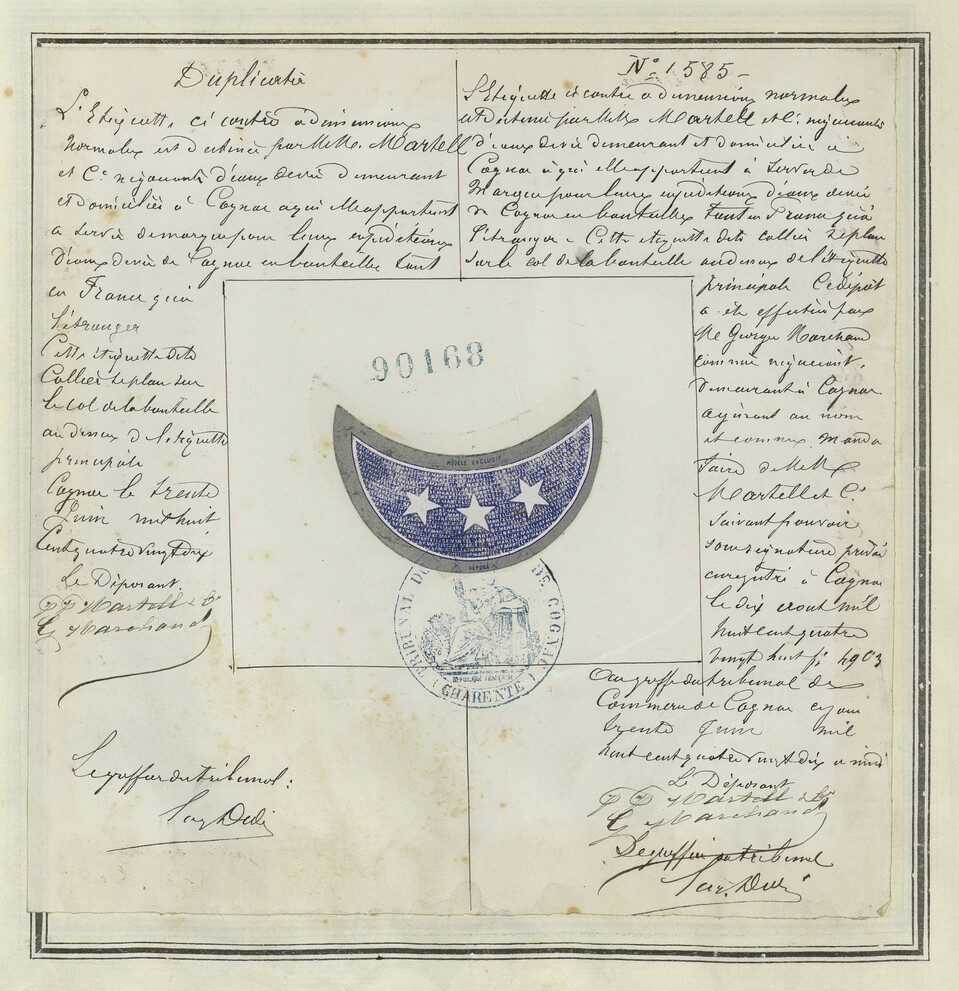 Duplicata
L'Etiquette ci contre à dimensions
Normales est destinée par MM. Martell
et Cie négociants d'eaux de vie demeurant
et domiciliés à Cognac a qui elle appartient
a servir de marque pour leurs expéditions
d'eaux de vie de Cognac en bouteilles tant
en France qu'à
l'étranger
Cette étiquette dite
Collier se place sur
le col de la bouteille
au dessus de l'étiquette
principale
Cognac le trente
Juin mil huit
Cent quatre vingt dix
Le Déposant.
PP Martell & Co
G Marchand
Le greffier du tribunal:
No 1585 -
L'Etiquette ci contre a dimensions normales
est destinée par MM Martell et Cie négociants
d'eaux de vie demeurant et domiciliés à
Cognac à qui elle appartient à servir de
Marque pour leurs expéditions d'eaux de vie
de Cognac en bouteilles tant en France qu'à
l'étranger. Cette étiquette dite collier se place
sur le col de la bouteille au dessus de l'étiquette
principale Ce dépôt
a été effectué par
Mr George Marchand
commis négociant,
Demeurant à Cognac
agissant au nom
et comme manda
taire de MM
Martell et Cie
suivant pouvoir
sous signature privée
enregistré à Cognac
le dix août mil
huit cent quatre
vingt huit fo 49 C3
Au greffe du tribunal de
Commerce de Cognac ce jour
trente Juin mil
huit cent quatre vingt dix a midi
Le Déposant
PP Martell & Co
G Marchand
Le greffier du tribunal
90168
MODÈLE EXCLUSIF
DÉPOSÉ
TRIBUNAL DE COGNAC
RÉPUBLIQUE FRANÇAISE
(CHARENTE)